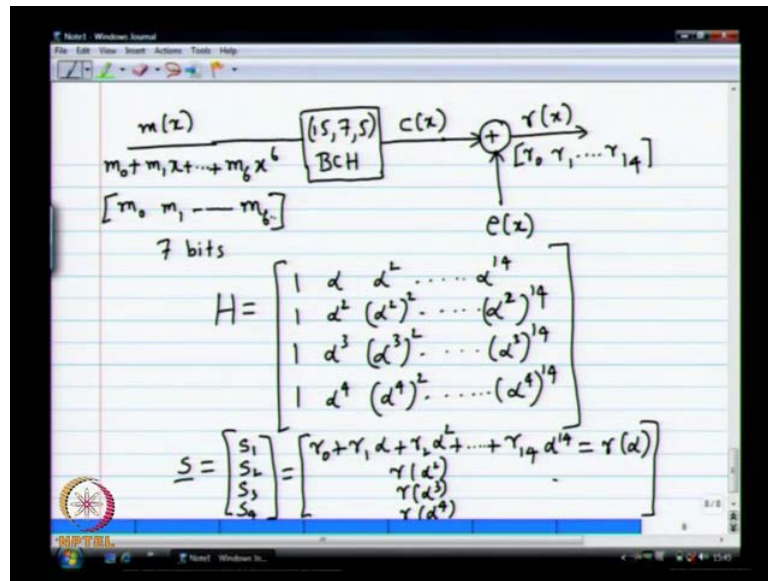 Note1 - Windows Journal
File Edit View Insert Actions Tools Help
m(x) (15,7,5) BCH c(x) + r(x)
m₀+m₁x+...+m₆x⁶ [r₀ r₁....r₁₄]
[m₀ m₁ --- m₆] e(x)
7 bits
H = [1 α α² ..... α¹⁴
1 α² (α²)² ..... (α²)¹⁴
1 α³ (α³)² ..... (α³)¹⁴
1 α⁴ (α⁴)² ..... (α⁴)¹⁴]
s = [S₁ S₂ S₃ S₄] = [r₀+r₁α+r₂α²+...+r₁₄α¹⁴ = r(α)
r(α²)
r(α³)
r(α⁴)]
8/8
NPTEL
Note1 - Windows Jo...
15:45